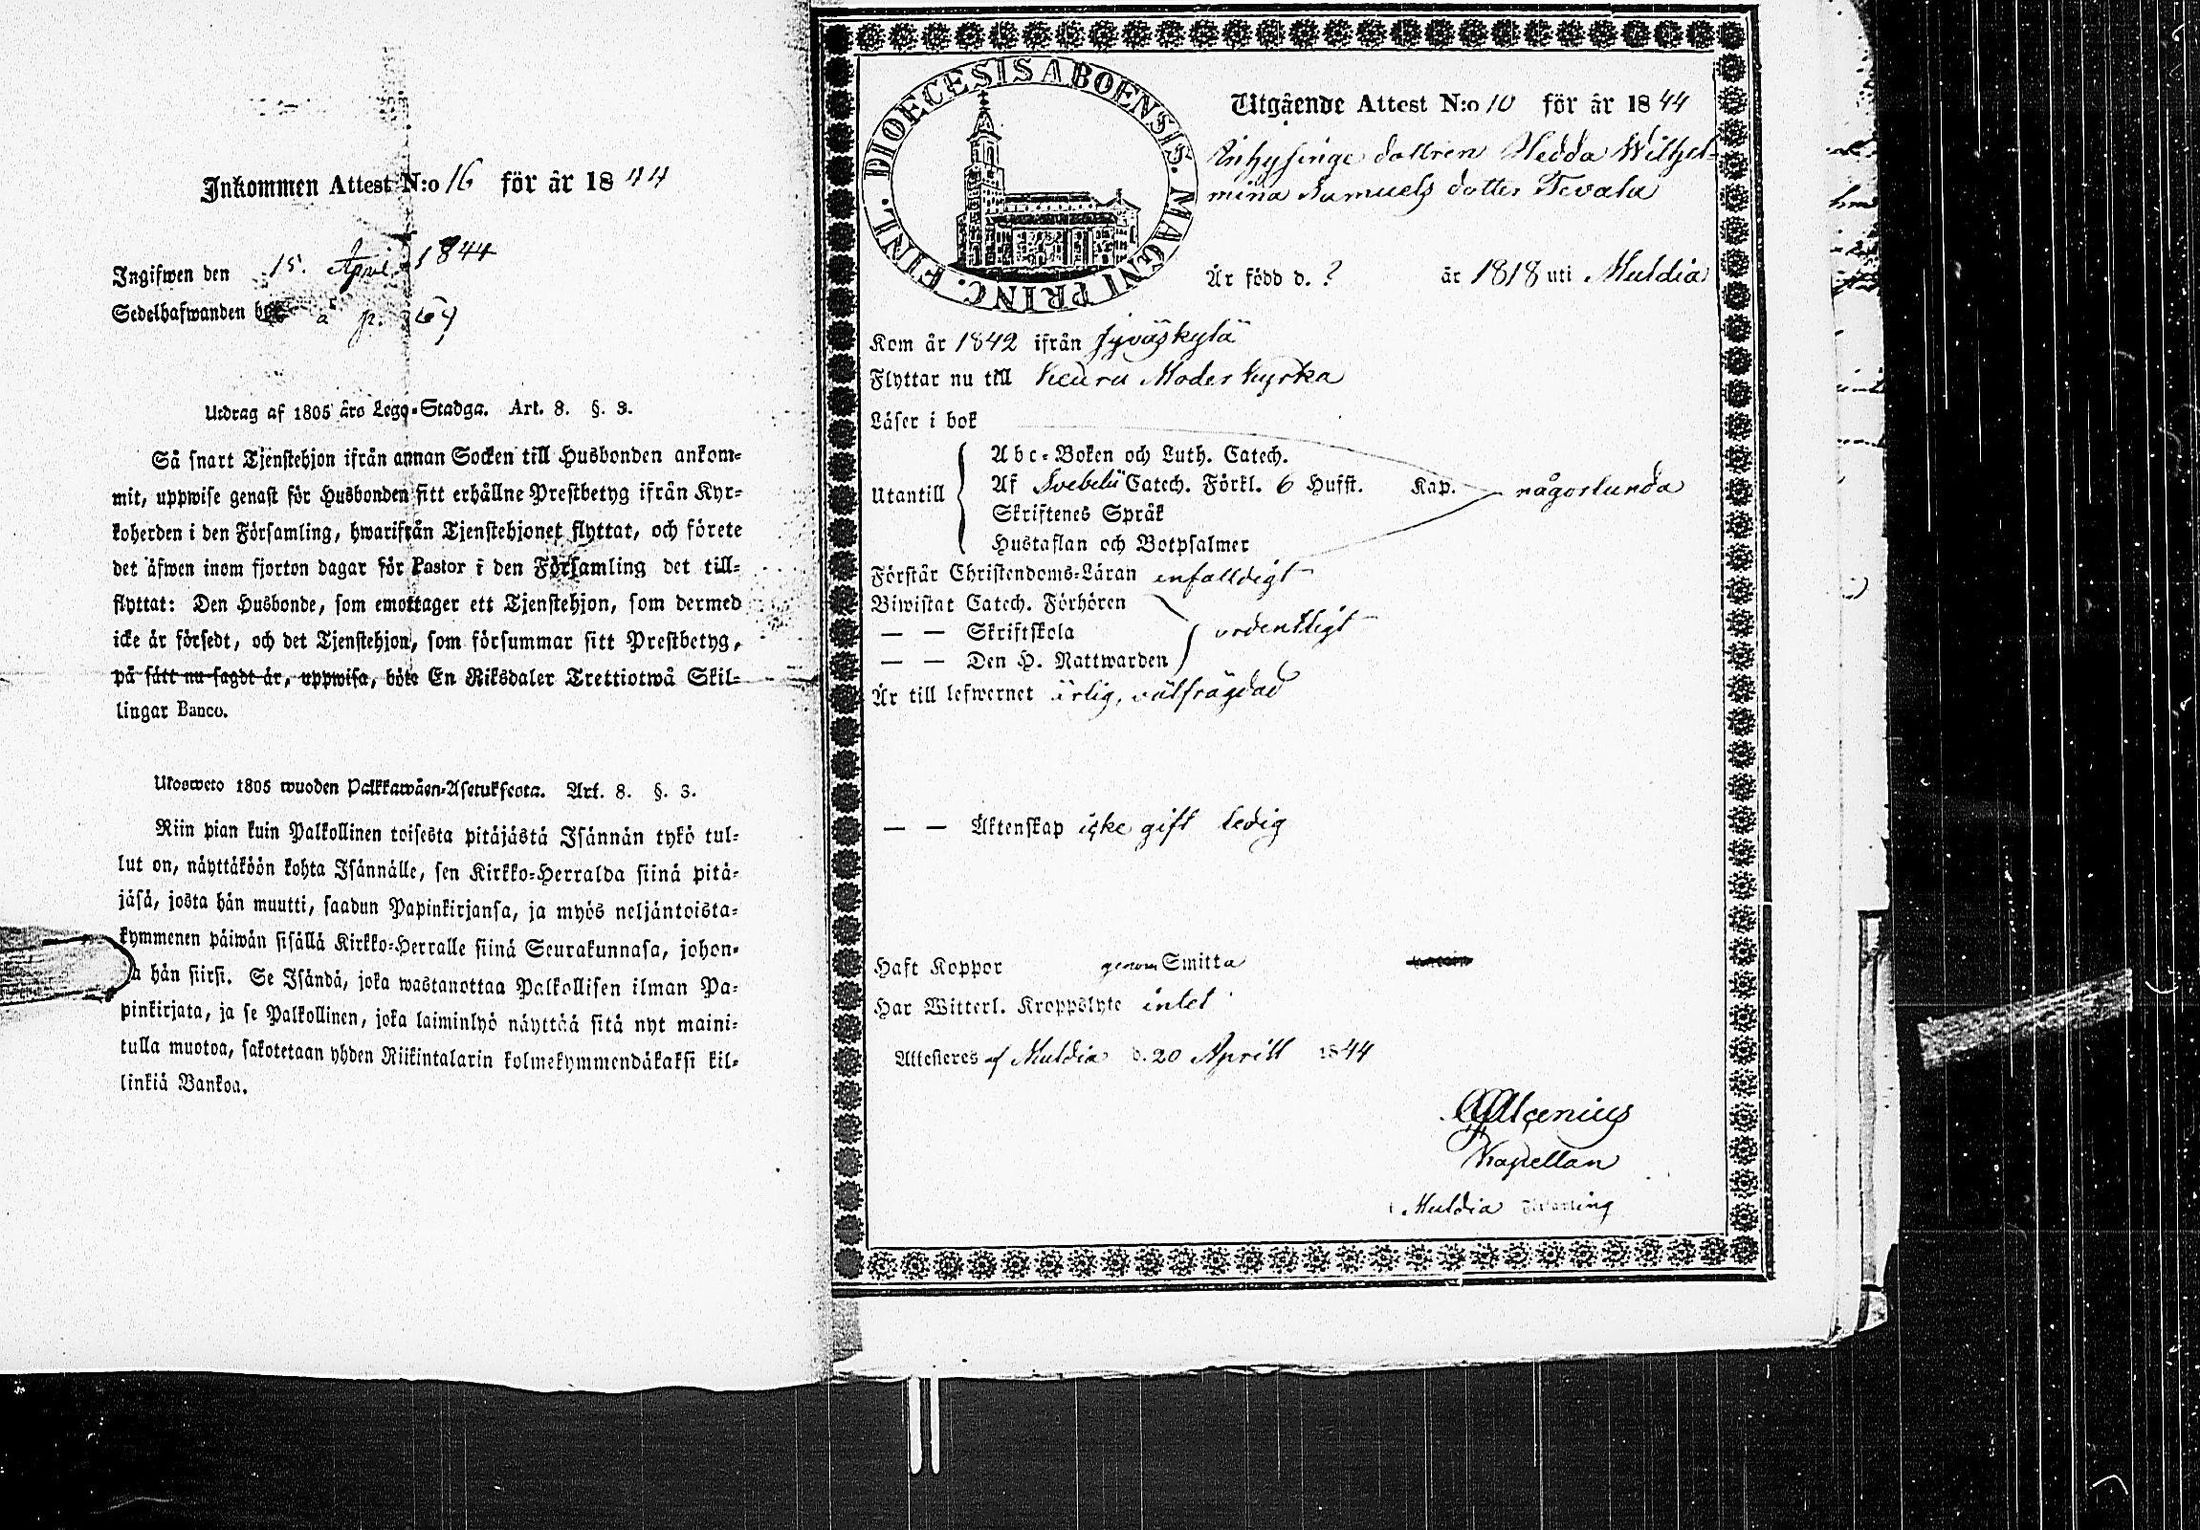 Inkommen Attest N:o 16 för år 1844
Ingifwen den 15. April 1844
Sedelhafwanden å p. 164
Utdrag af 1805 års Lego-Stadga. Art. 8. §. 3.
Så snart Tjenstehjon ifrån annan Socken till Husbonden ankom-
mit, uppwise genast för Husbonden sitt erhållne Prestbetyg ifrån Kyr-
koherden i den Församling, hwarifrån Tjenstehjonet flyttat, och förete
det äfwen inom fjorton dagar för Pastor i den Församling det till-
flyttat: Den Husbonde, som emottager ett Tjenstehjon, som dermed
icke är försedt, och det Tjenstehjon, som försummar sitt Prestbetyg,
på sätt nu sagdt är, uppwisa, böte En Riksdaler Trettiotwå Skil-
lingar Banco.
Ulosweto 1805 wuoden Palkkawäen-Asetuksesta. Art. 8. §. 3.
Niin pian kuin Palkollinen toisesta pitäjästä Isännän tykö tul-
lut on, näyttäköön kohta Isännälle, sen Kirkko-Herralda siinä pitä-
jäsä, josta hän muutti, saadun Papinkirjansa, ja myös neljäntoista-
kymmenen päiwän sisällä Kirkko-Herralle siinä Seurakunnasa, johon-
a hän siirsi. Se Isändä, joka wastanottaa Palkollisen ilman Pa-
pinkirjata, ja se Palkollinen, joka laiminlyö näyttää sitä nyt maini-
tulla muotoa, sakotetaan yhden Riikintalarin kolmekymmendäkaksi kil-
linkiä Bankoa.
DIOECESIS ABOENSIS. MAGNI PRINC. FINL.
Utgående Attest N:o 10 för år 1844
Inhysinge dottren Hedda Wilhel-
mina Samuels dotter Tevala
Är född d. ? år 1818 uti Muldia
Kom år 1842 ifrån Jyväskylä
Flyttar nu till Keuru Moderkyrka
Läser i bok
Abc-Boken och Luth. Catech.
Utantill Af Svebelii Catech. Förkl. 6 Hufst. Kap. någorlunda
Skriftenes Språk
Hustaflan och Botpsalmer
Förstår Christendoms-Läran enfaldigt
Biwistat Catech. Förhören
— — Skriftskola ordentligt
— — Den H. Nattwarden
Är till lefwernet ärlig, välfrägdad
— — Äktenskap icke gift ledig
Haft Koppor genom Smitta
Har Witterl. Kroppslyte intet
Attesteres af Muldia d. 20 Aprill 1844
Alcenius
Kapellan
i Muldia Församling